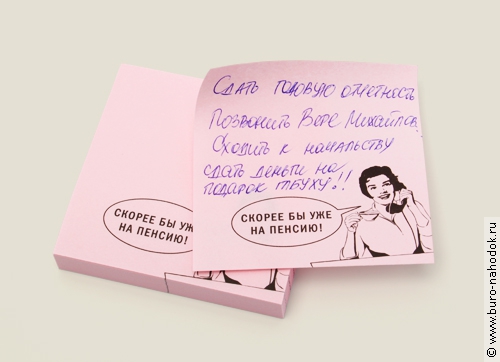 Сдать годовую отчетность
Позвонить Вере Михайлов.
Сходить к начальству
сдать деньги на
подарок главбуху!!
СКОРЕЕ БЫ УЖЕ
НА ПЕНСИЮ!
СКОРЕЕ БЫ УЖЕ
НА ПЕНСИЮ!
© www.buro-nahodok.ru